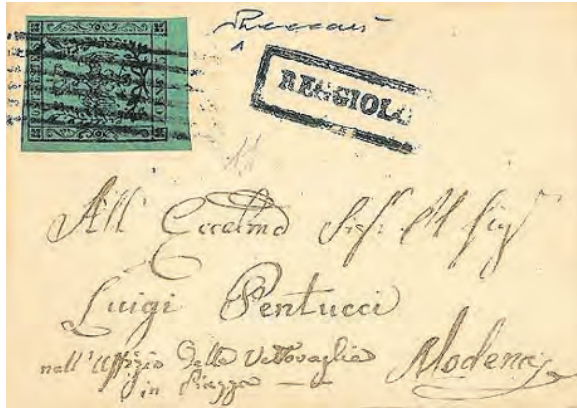 REGGIOLO
All' Eccelmo Sig.
Luigi Pentucci
nell'Uffizio delle Vettovaglie
in Piazza
Modena